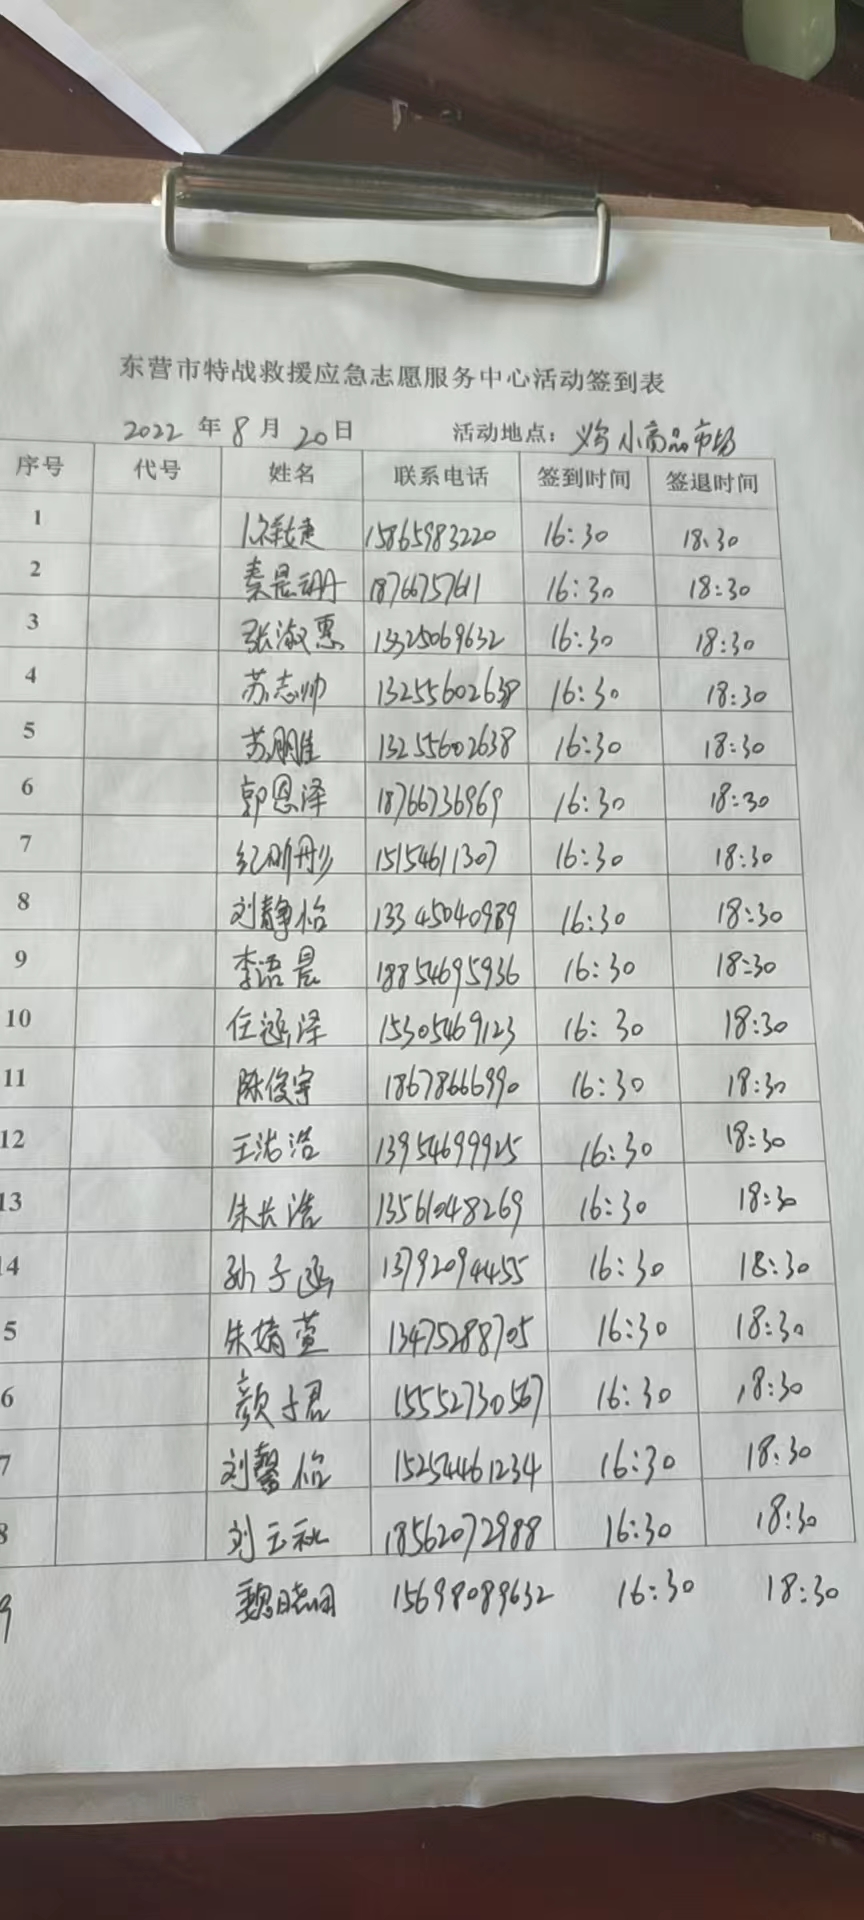 东营市特战救援应急志愿服务中心活动签到表
2022 年 8 月 20 日 活动地点: 义乌小商品市场
序号 代号 姓名 联系电话 签到时间 签退时间
1 15865983220 16:30 18:30
2 秦晨珊 18766757611 16:30 18:30
3 张淑惠 13325069632 16:30 18:30
4 苏志帅 13255602638 16:30 18:30
5 苏朋佳 13255602638 16:30 18:30
6 郭恩泽 18766736969 16:30 18:30
7 15154611307 16:30 18:30
8 刘静怡 13345040989 16:30 18:30
9 李语晨 18854695936 16:30 18:30
10 任涵泽 15305469123 16:30 18:30
11 陈俊宇 18678666990 16:30 18:30
12 王浩浩 13954699925 16:30 18:30
13 朱长浩 13561048269 16:30 18:30
14 孙子涵 13792094455 16:30 18:30
5 朱婧萱 13475288705 16:30 18:30
6 颜子君 15552730567 16:30 18:30
7 刘馨怡 15254461234 16:30 18:30
8 刘玉秋 18562072988 16:30 18:30
9 魏晓丽 15698089632 16:30 18:30